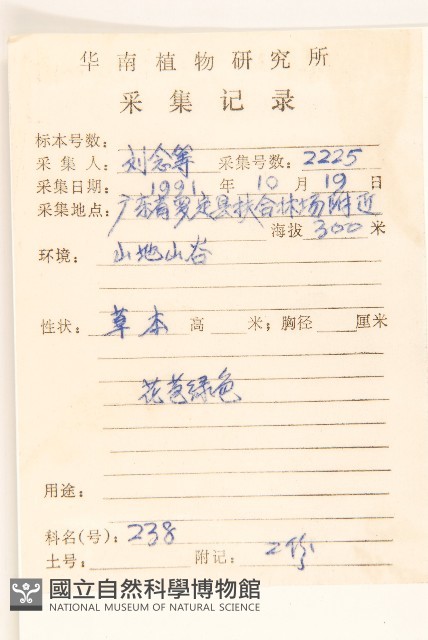 华南植物研究所
采集记录
标本号数：
采集人：刘念等 采集号数：2225
采集日期：1991年10月19日
采集地点：广东省罗定县扶合林场附近
海拔300米
环境：山地山谷
性状：草本 高 米；胸径 厘米
花苞绿色
用途：
科名(号)：238
土号： 附记：2份
國立自然科學博物館
NATIONAL MUSEUM OF NATURAL SCIENCE